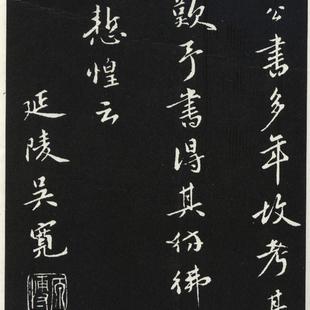 公書多年故考其
歎予書得其彷彿
慙惶云
延陵吳寬